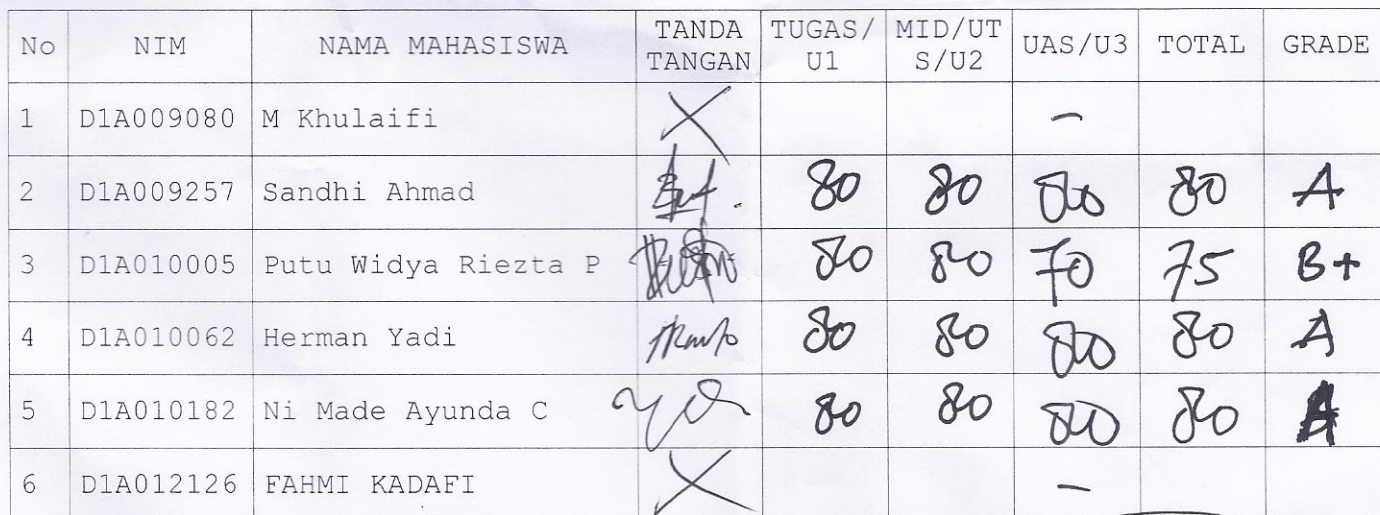 No NIM NAMA MAHASISWA TANDA TANGAN TUGAS/U1 MID/UTS/U2 UAS/U3 TOTAL GRADE
1 D1A009080 M Khulaifi X -
2 D1A009257 Sandhi Ahmad 80 80 80 80 A
3 D1A010005 Putu Widya Riezta P 80 80 70 75 B+
4 D1A010062 Herman Yadi 80 80 80 80 A
5 D1A010182 Ni Made Ayunda C 80 80 80 80 A
6 D1A012126 FAHMI KADAFI X -